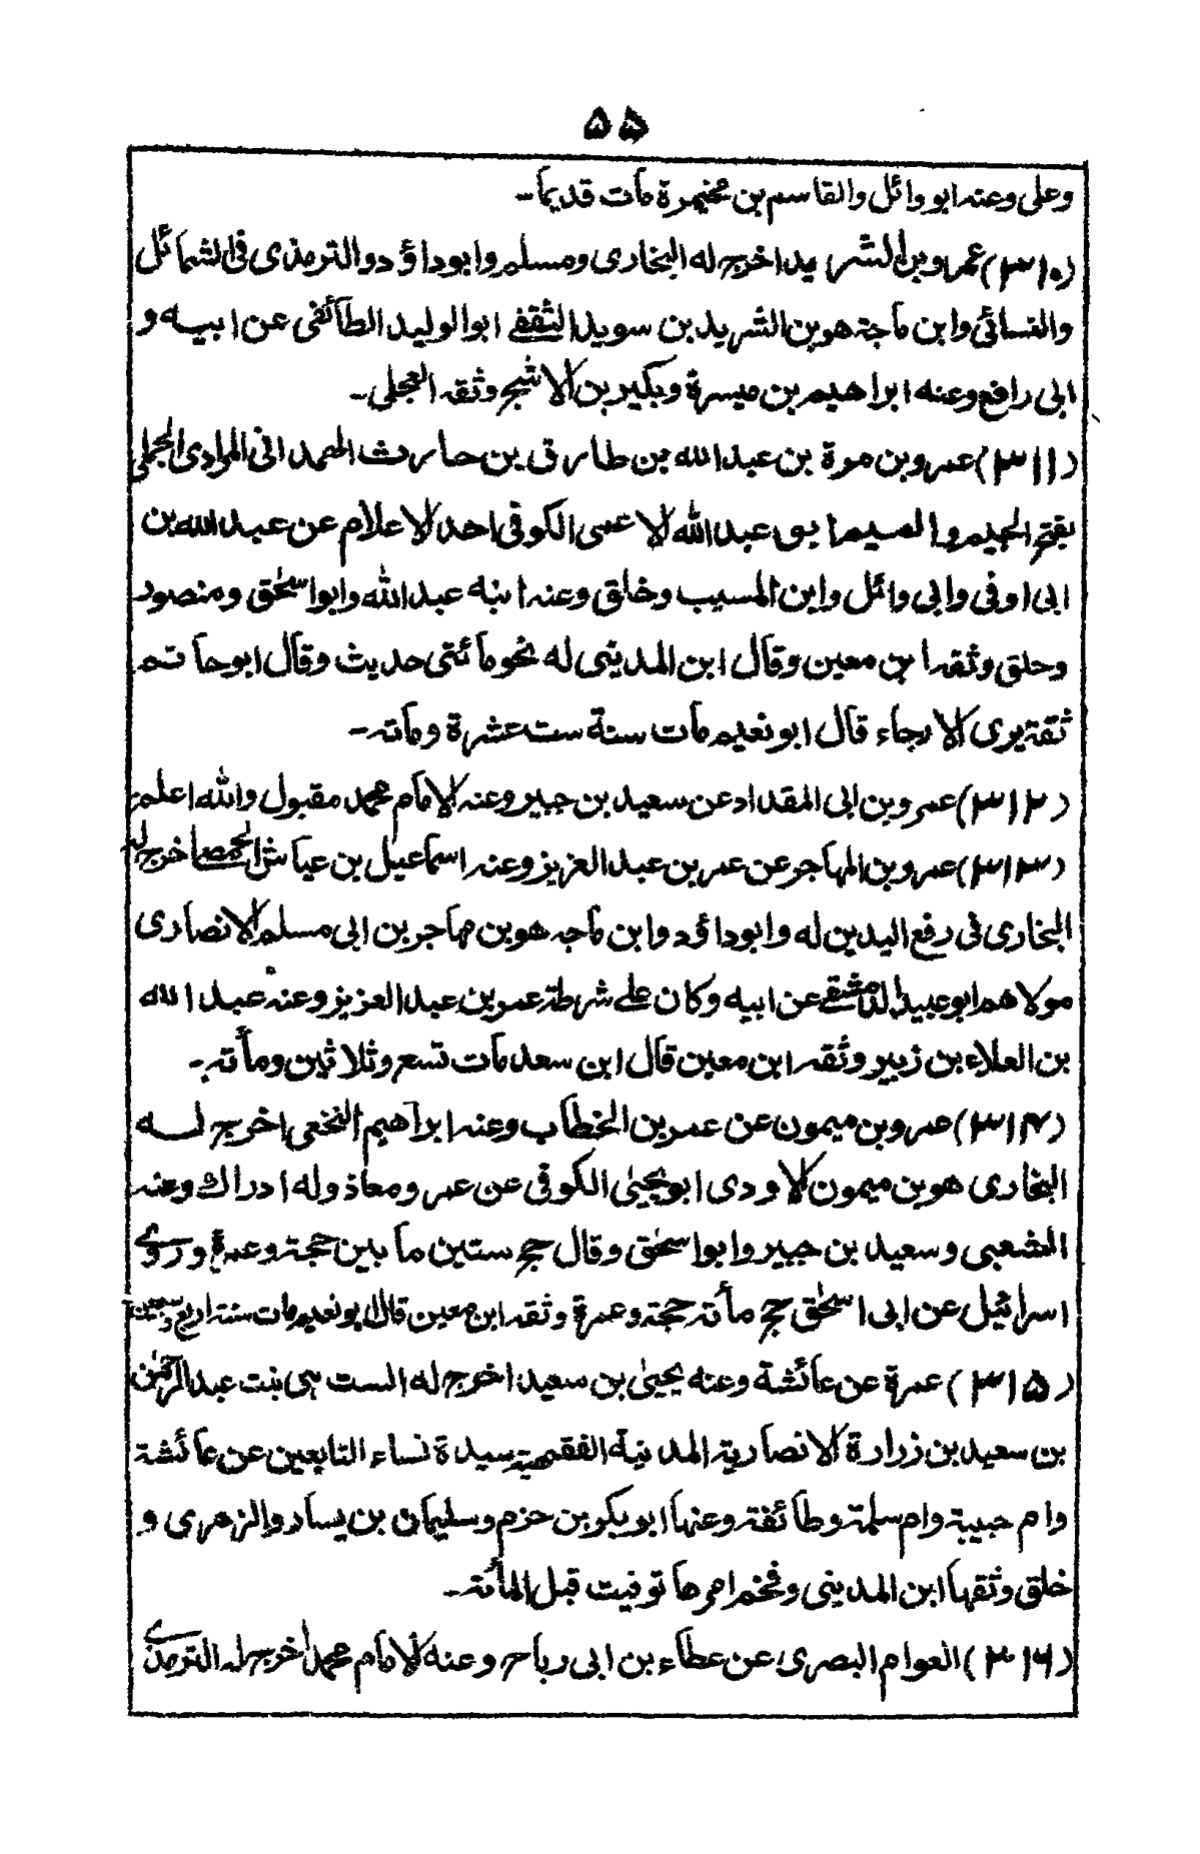 ۵۵
وعلی وعنہ ابو وائل والقاسم بن مخیمرۃ مات قدیما۔
(۳۱۰) عمرو بن الشرید اخرج له البخاری ومسلم وابوداؤد والترمذی فی الشمائل
والنسائی وابن ماجۃ هو بن الشرید بن سوید الثقفے ابو الولید الطائفی عن ابیه و
ابی رافع وعنه ابراهیم بن میسرۃ وبکیر بن الاشج وثقہ العجلی۔
(۳۱۱) عمرو بن مرۃ بن عبد الله بن طارق بن حارث الهمدانی المرادی الجملی
بفتح الجیم والمیم ابو عبد الله الاعمی الکوفی احد الاعلام عن عبد الله بن
ابی اوفی وابی وائل وابن المسیب وخلق وعنه ابنه عبد الله وابو اسحٰق ومنصور
وخلق وثقہ ابن معین وقال ابن المدینی له نحو مائتی حدیث وقال ابو حاتم
ثقۃ یری الارجاء قال ابو نعیم مات سنۃ ست عشرۃ ومأتہ۔
(۳۱۲) عمرو بن ابی المقداد عن سعید بن جبیر وعنه الامام محمد مقبول والله اعلم
(۳۱۳) عمرو بن المهاجر عن عمر بن عبد العزیز وعنه اسماعیل بن عیاش الحمصے اخرج له
البخاری فی رفع الیدین له وابوداؤد وابن ماجہ هو بن مهاجر بن ابی مسلم الانصاری
مولاهم ابو عبید الدمشقے عن ابیه وکان علے شرطۃ عمر بن عبد العزیز وعنہ عبد الله
بن العلاء بن زبیر وثقہ ابن معین قال ابن سعد مات تسع وثلاثین ومأتہ۔
(۳۱۴) عمرو بن میمون عن عمر بن الخطاب وعنہ ابراهیم النخعی اخرج لہ
البخاری هو بن میمون الاودی ابو یحیٰی الکوفی عن عمر ومعاذ وله ادراک وعنہ
الشعبی وسعید بن جبیر وابو اسحٰق وقال حج ستین ما بین حجۃ وعمرۃ وروی
اسرائیل عن ابی اسحٰق حج مأتہ حجۃ وعمرۃ وثقہ ابن معین قال ابو نعیم مات سنۃ اربع وسبعین
(۳۱۵) عمرۃ عن عائشۃ وعنه یحیٰی بن سعید اخرج له الست هی بنت عبد الرحمٰن
بن سعید بن زرارۃ الانصاریۃ المدنیۃ الفقیهۃ سیدۃ نساء التابعین عن عائشۃ
وام حبیبۃ وام سلمۃ وطائفۃ وعنها ابو بکر بن حزم وسلیمان بن یسار والزهری و
خلق وثقها ابن المدینی وفخم امرها توفیت قبل المأتہ۔
(۳۱۶) العوام البصری عن عطاء بن ابی رباح وعنه الامام محمد اخرج له الترمذی